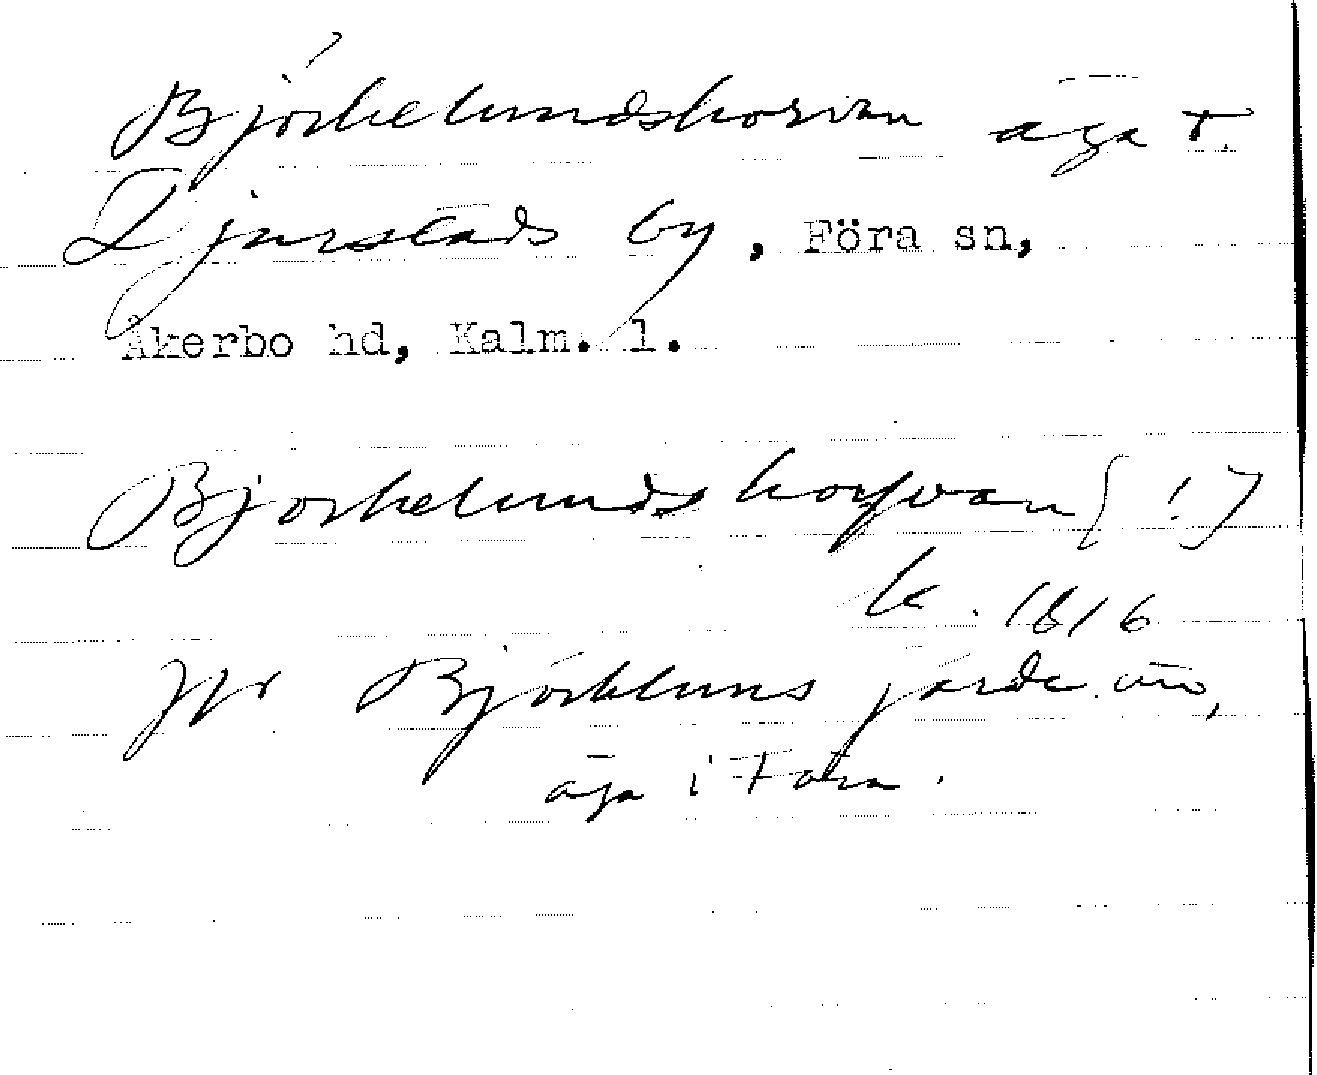 ? Björkelundskorvan äga t.
Djurstads by, Föra sn,
Åkerbo hd, Kalm. l.
Bjorkelunds korfvan (!)
k. 1816
Jfr Björkluns järde
äga i Föra.